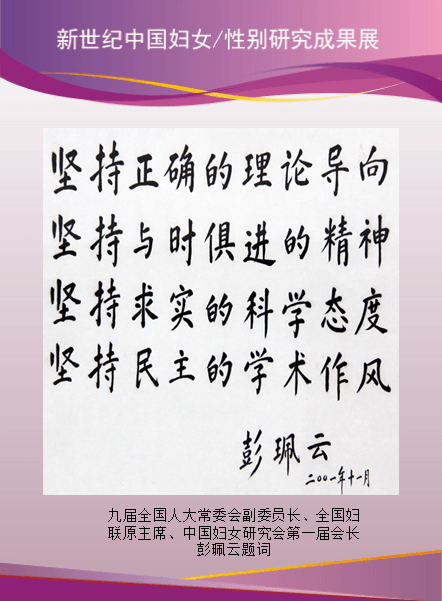 新世纪中国妇女/性别研究成果展
坚持正确的理论导向
坚持与时俱进的精神
坚持求实的科学态度
坚持民主的学术作风
彭珮云
二〇〇一年十一月
九届全国人大常委会副委员长、全国妇
联原主席、中国妇女研究会第一届会长
彭珮云题词